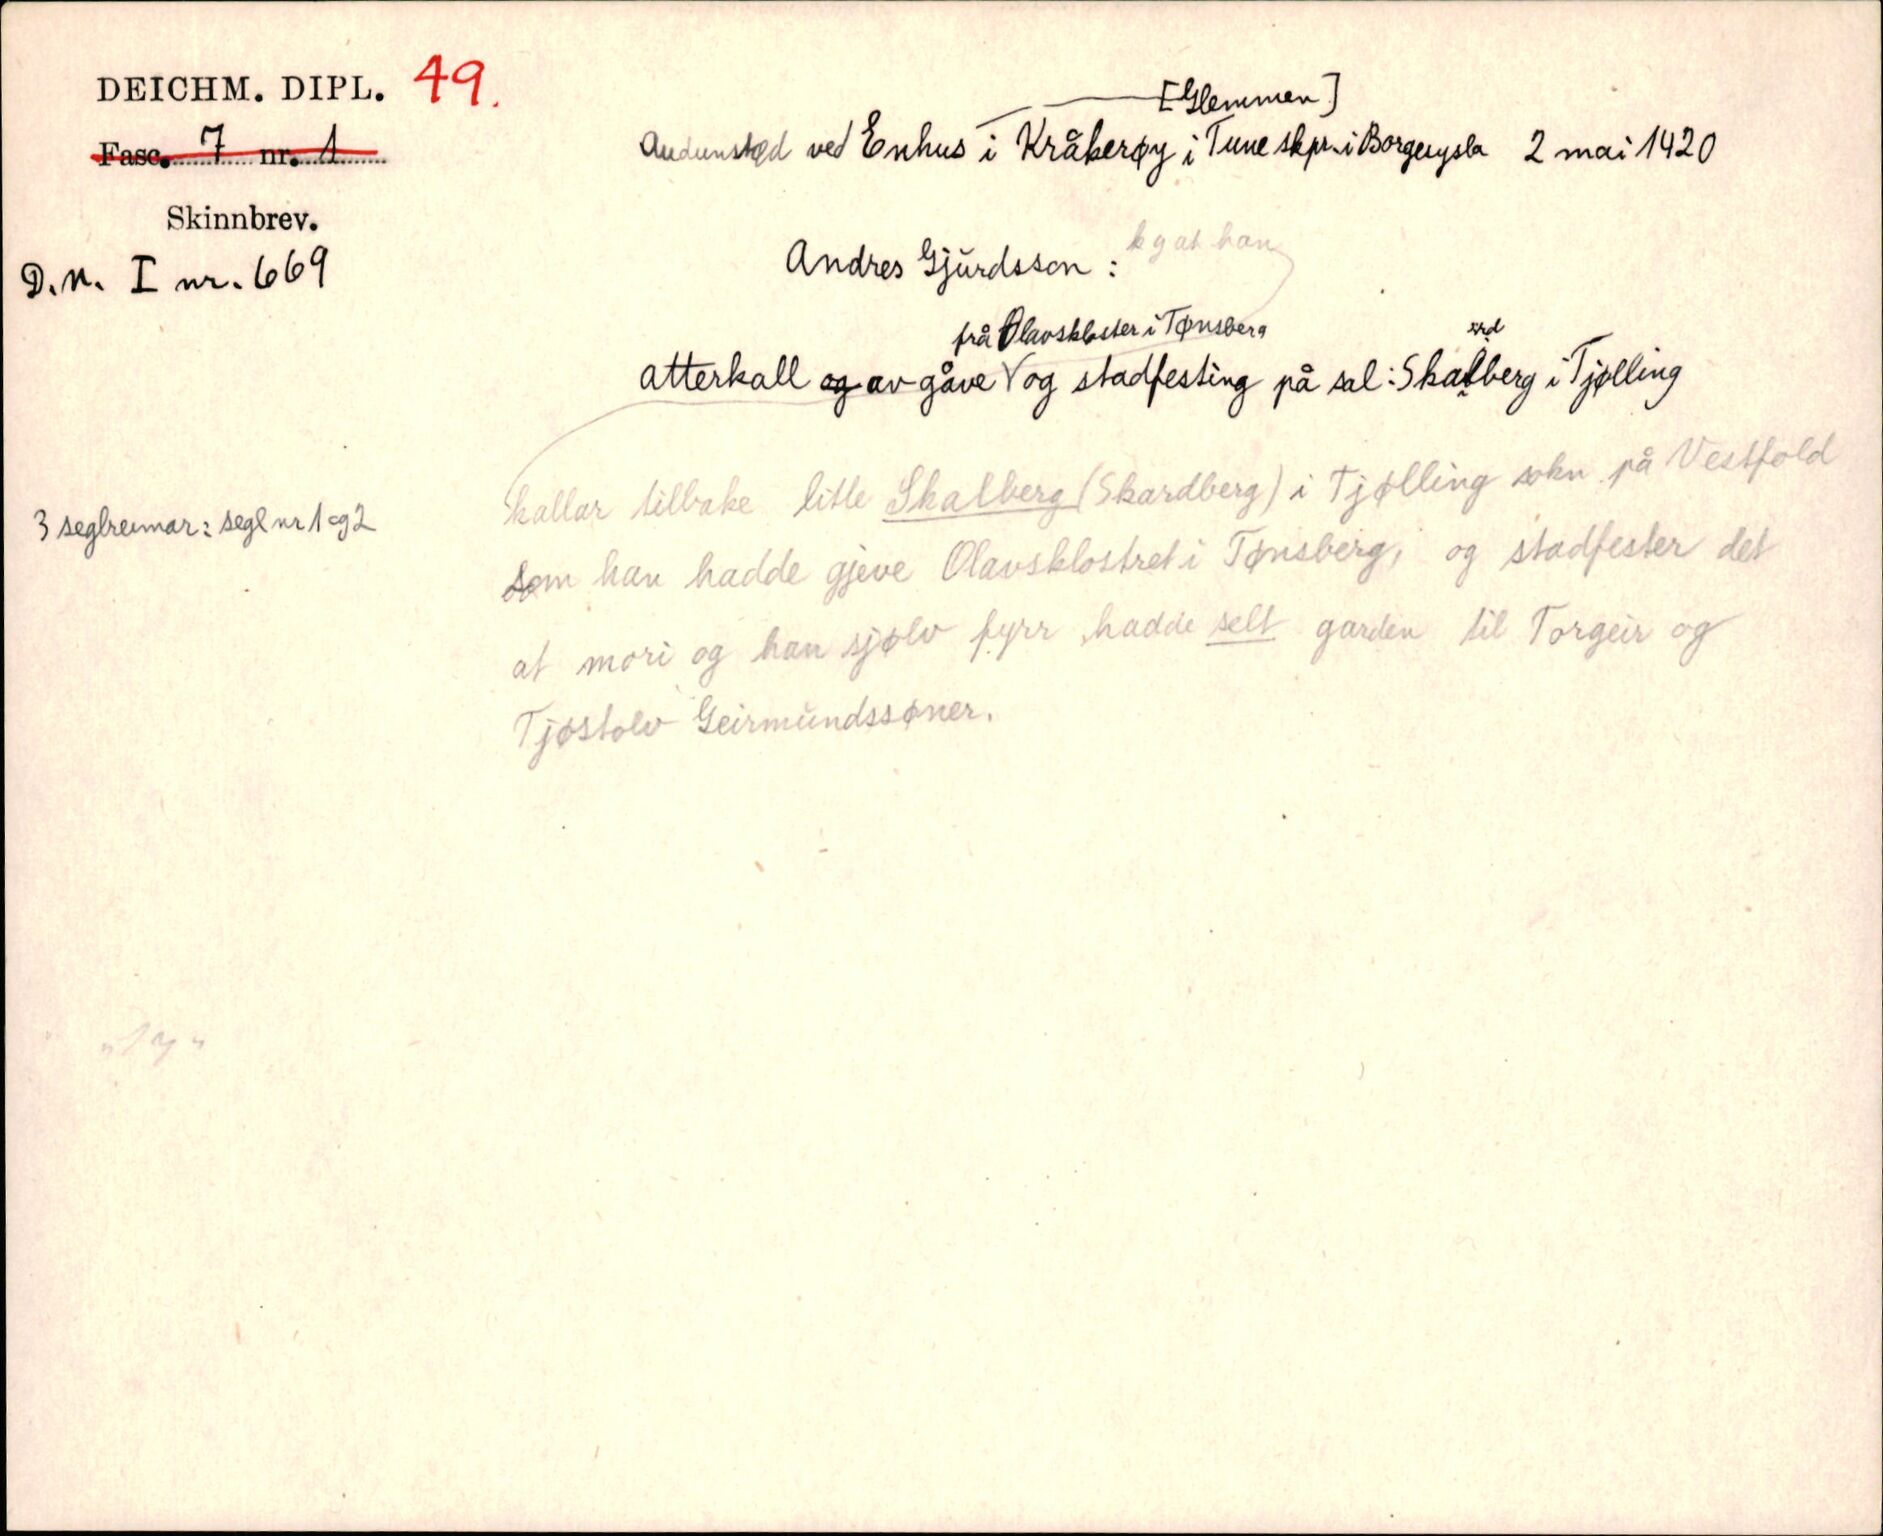 DEICHM. DIPL. 49.
Fasc. 7 nr. 1
Skinnbrev.
D.N. I nr. 669
[Glemmen]
Audunstad ved Enhus i Kråkerøy i Tune skpr. i Borgesysla 2 mai 1420
kg at han
Andres Gjurdsson :
frå Olavskloster i Tønsberg
rd
atterkall og av gåve V og stadfesting på sal: Skalberg i Tjølling
kallar tilbake litle Skalberg (Skardberg) i Tjølling sokn på Vestfold
3 seglreimar: segl nr 1 og 2
som han hadde gjeve Olavsklostret i Tønsberg, og stadfester det
at mori og han sjølv fyrr hadde selt garden til Torgeir og
Tjøstolv Geirmundssøner.